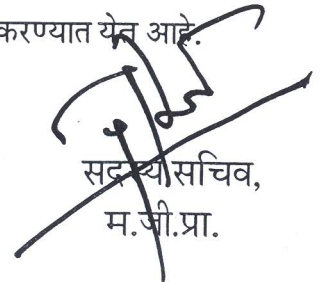 करण्यात येत आहे.
सदस्य सचिव,
म.जी.प्रा.